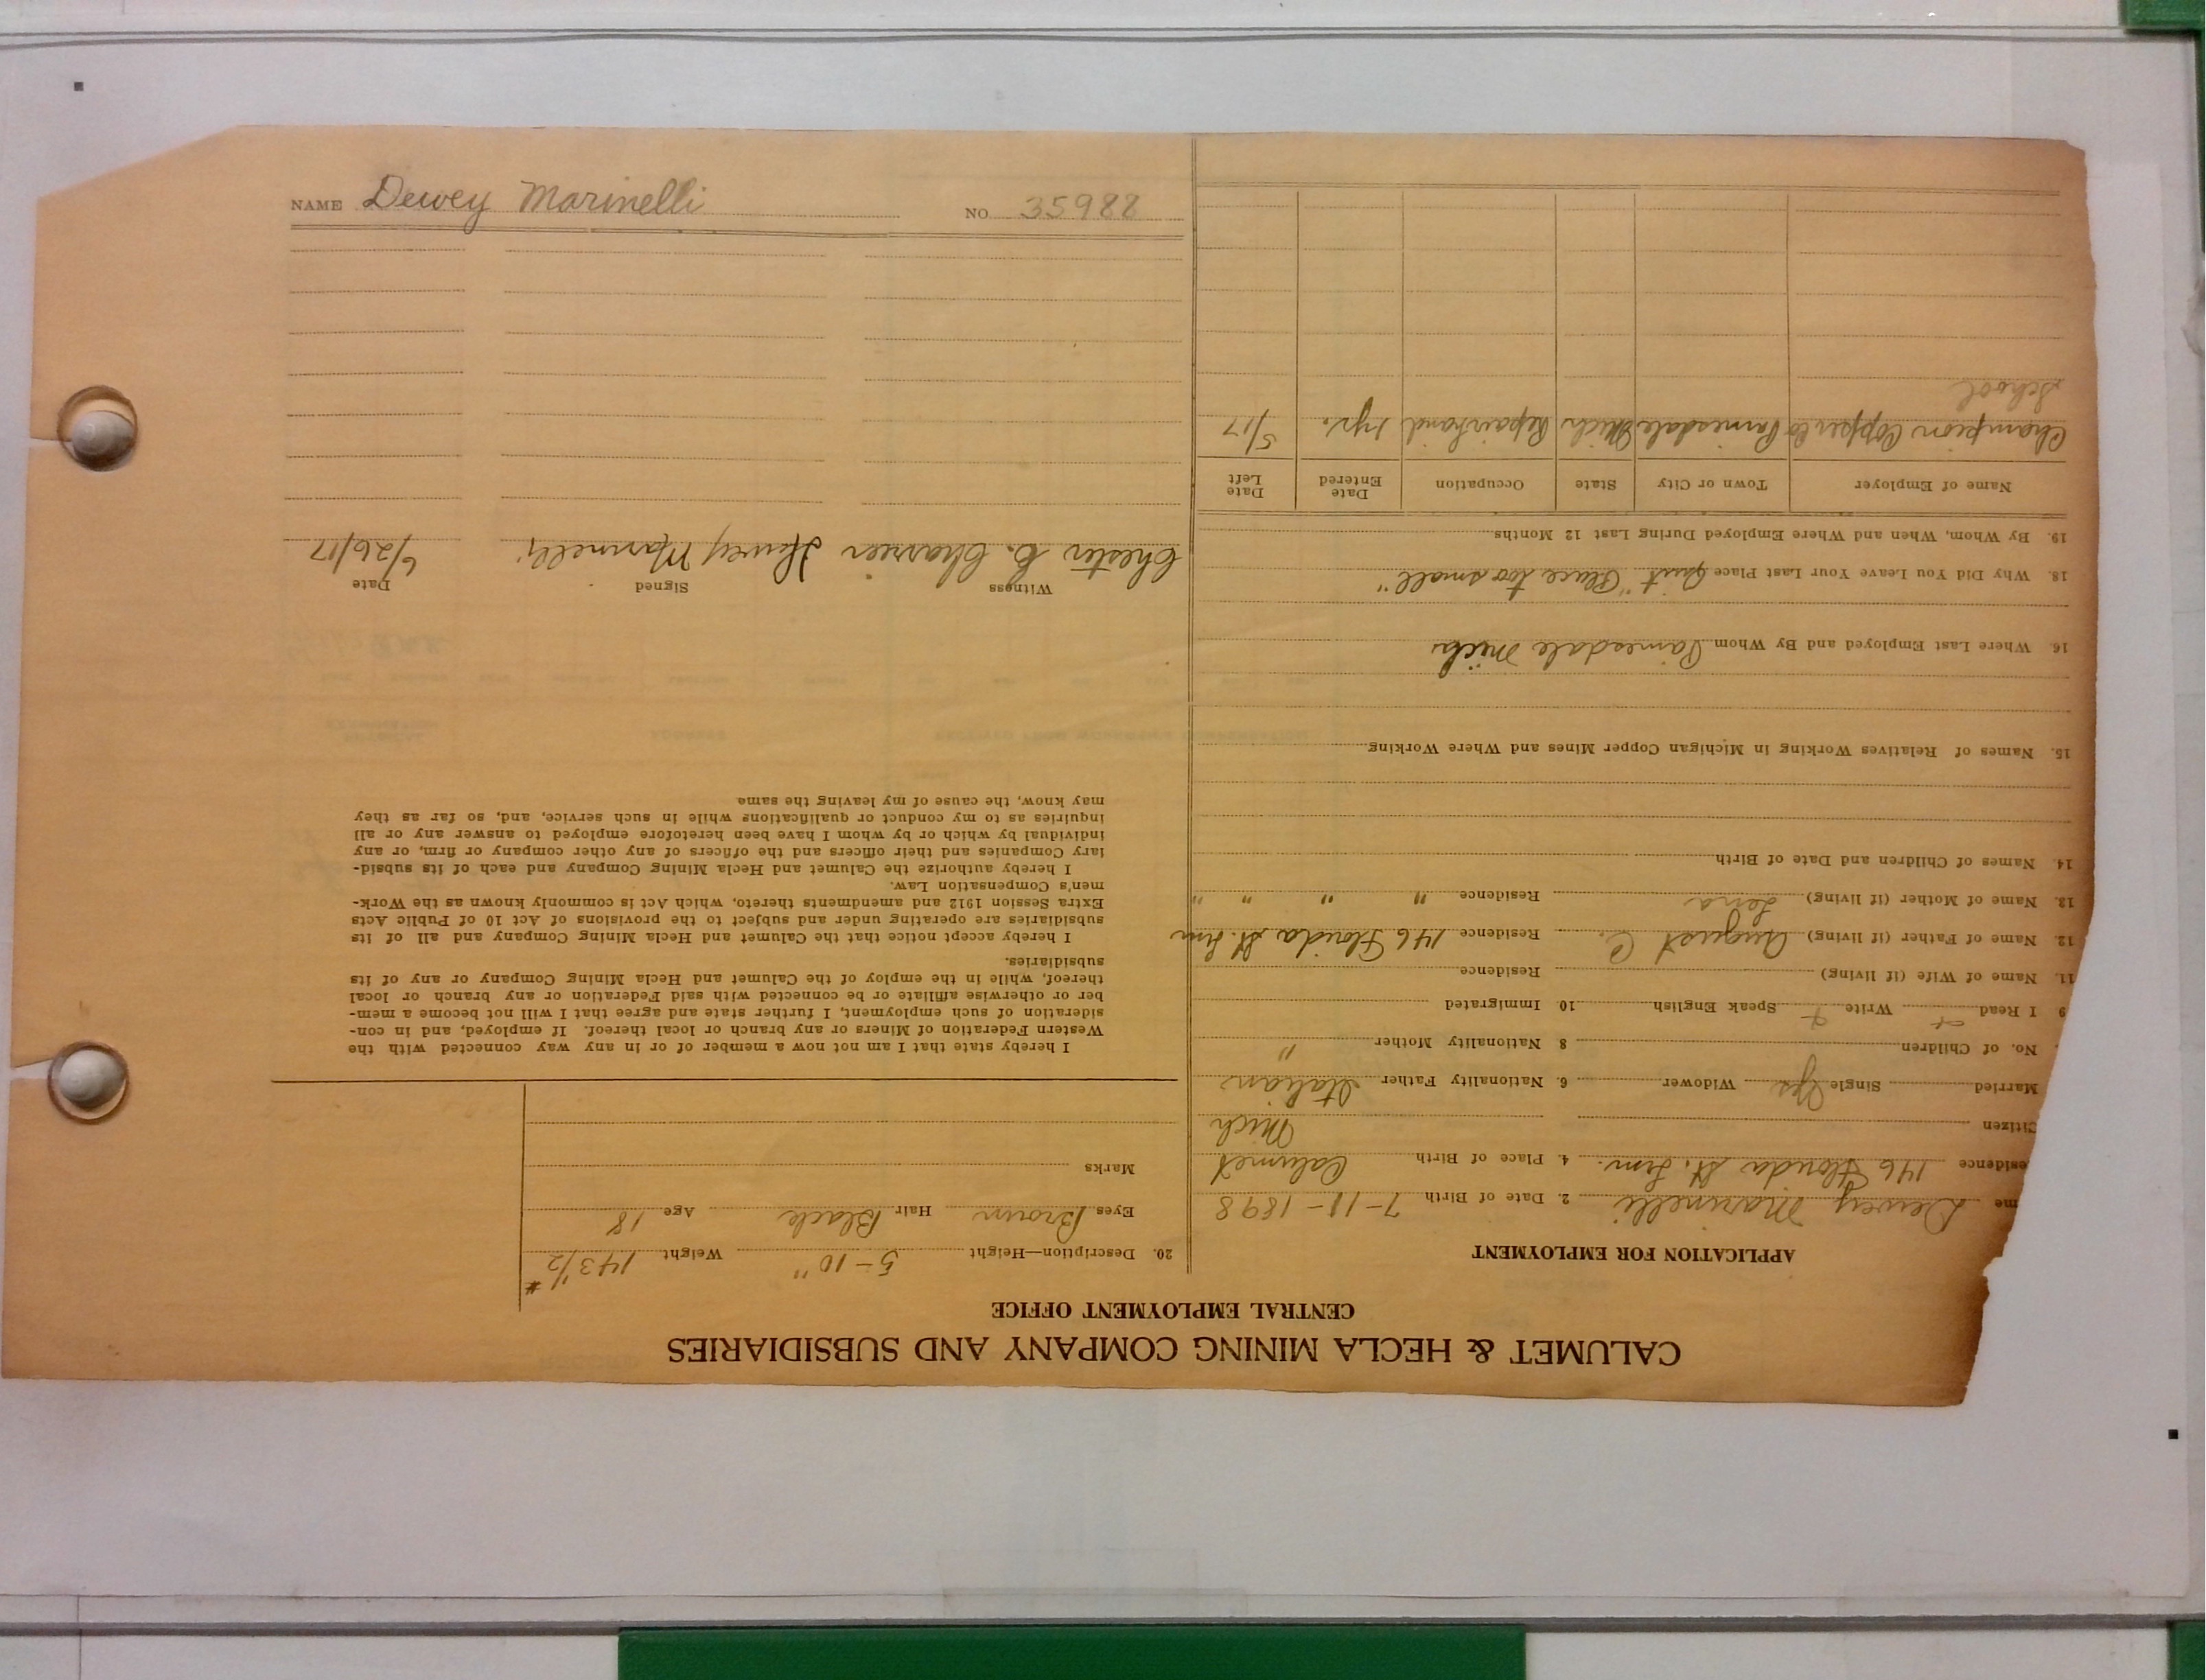 NAME Dewey Marinelli NO. 35988
CALUMET & HECLA MINING COMPANY AND SUBSIDIARIES
CENTRAL EMPLOYMENT OFFICE
APPLICATION FOR EMPLOYMENT
me Dewey Marinelli 2. Date of Birth 7-11-1898
esidence 146 Florida St. Lrm. 4. Place of Birth Calumet
Citizen Mich
Married Single Yes Widower 6. Nationality Father Italian
No. of Children 8 Nationality Mother "
9 I Read Write Speak English 10. Immigrated
11. Name of Wife (if living) Residence
12. Name of Father (if living) August C. Residence 146 Florida St. Lrm
13. Name of Mother (if living) Lena Residence " " " "
14. Names of Children and Date of Birth
15. Names of Relatives Working in Michigan Copper Mines and Where Working
16. Where Last Employed and By Whom Painesdale Mich
18. Why Did You Leave Your Last Place Quit "Place too small"
19. By Whom, When and Where Employed During Last 12 Months
Name of Employer Town or City State Occupation Date Entered Date Left
Champion Copper Co Painesdale Mich Repair hand 1 yr. 5/17
School
20. Description—Height 5-10" Weight 143 1/2 #
Eyes Brown Hair Black Age 18
Marks
I hereby state that I am not now a member of or in any way connected with the
Western Federation of Miners or any branch or local thereof. If employed, and in con-
sideration of such employment, I further state and agree that I will not become a mem-
ber or otherwise affiliate or be connected with said Federation or any branch or local
thereof, while in the employ of the Calumet and Hecla Mining Company or any of its
subsidiaries.
I hereby accept notice that the Calumet and Hecla Mining Company and all of its
subsidiaries are operating under and subject to the provisions of Act 10 of Public Acts
Extra Session 1912 and amendments thereto, which Act is commonly known as the Work-
men's Compensation Law.
I hereby authorize the Calumet and Hecla Mining Company and each of its subsid-
iary Companies and their officers and the officers of any other company or firm, or any
individual by which or by whom I have been heretofore employed to answer any or all
inquiries as to my conduct or qualifications while in such service, and, so far as they
may know, the cause of my leaving the same
Witness Signed Date
Chester C. Dewey Marinelli 6/26/17